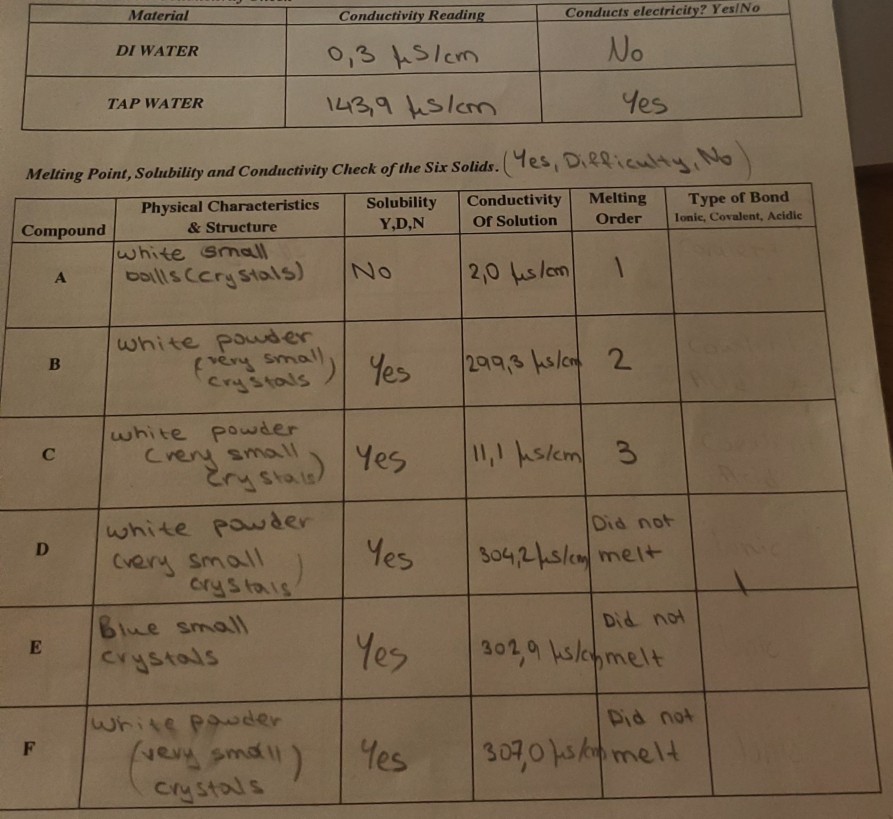 Material Conductivity Reading Conducts electricity? Yes/No
DI WATER 0,3 µS/cm No
TAP WATER 143,9 µS/cm Yes
Melting Point, Solubility and Conductivity Check of the Six Solids. (Yes, Difficulty, No)
Compound Physical Characteristics & Structure Solubility Y,D,N Conductivity Of Solution Melting Order Type of Bond Ionic, Covalent, Acidic
A white small
balls (crystals) No 2,0 µs/cm 1
B white powder
(very small
crystals) Yes 299,3 µs/cm 2
C white powder
(very small
crystals) Yes 11,1 µs/cm 3
D white powder
(very small
crystals) Yes 304,2 µs/cm Did not
melt
E Blue small
crystals Yes 302,9 µs/cm Did not
melt
F white powder
(very small)
crystals Yes 307,0 µs/cm Did not
melt